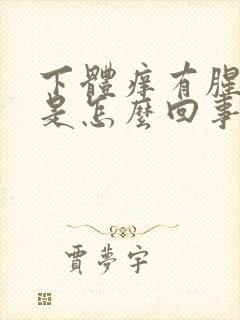 下體痒有腥
是怎麼回事
賈夢宇